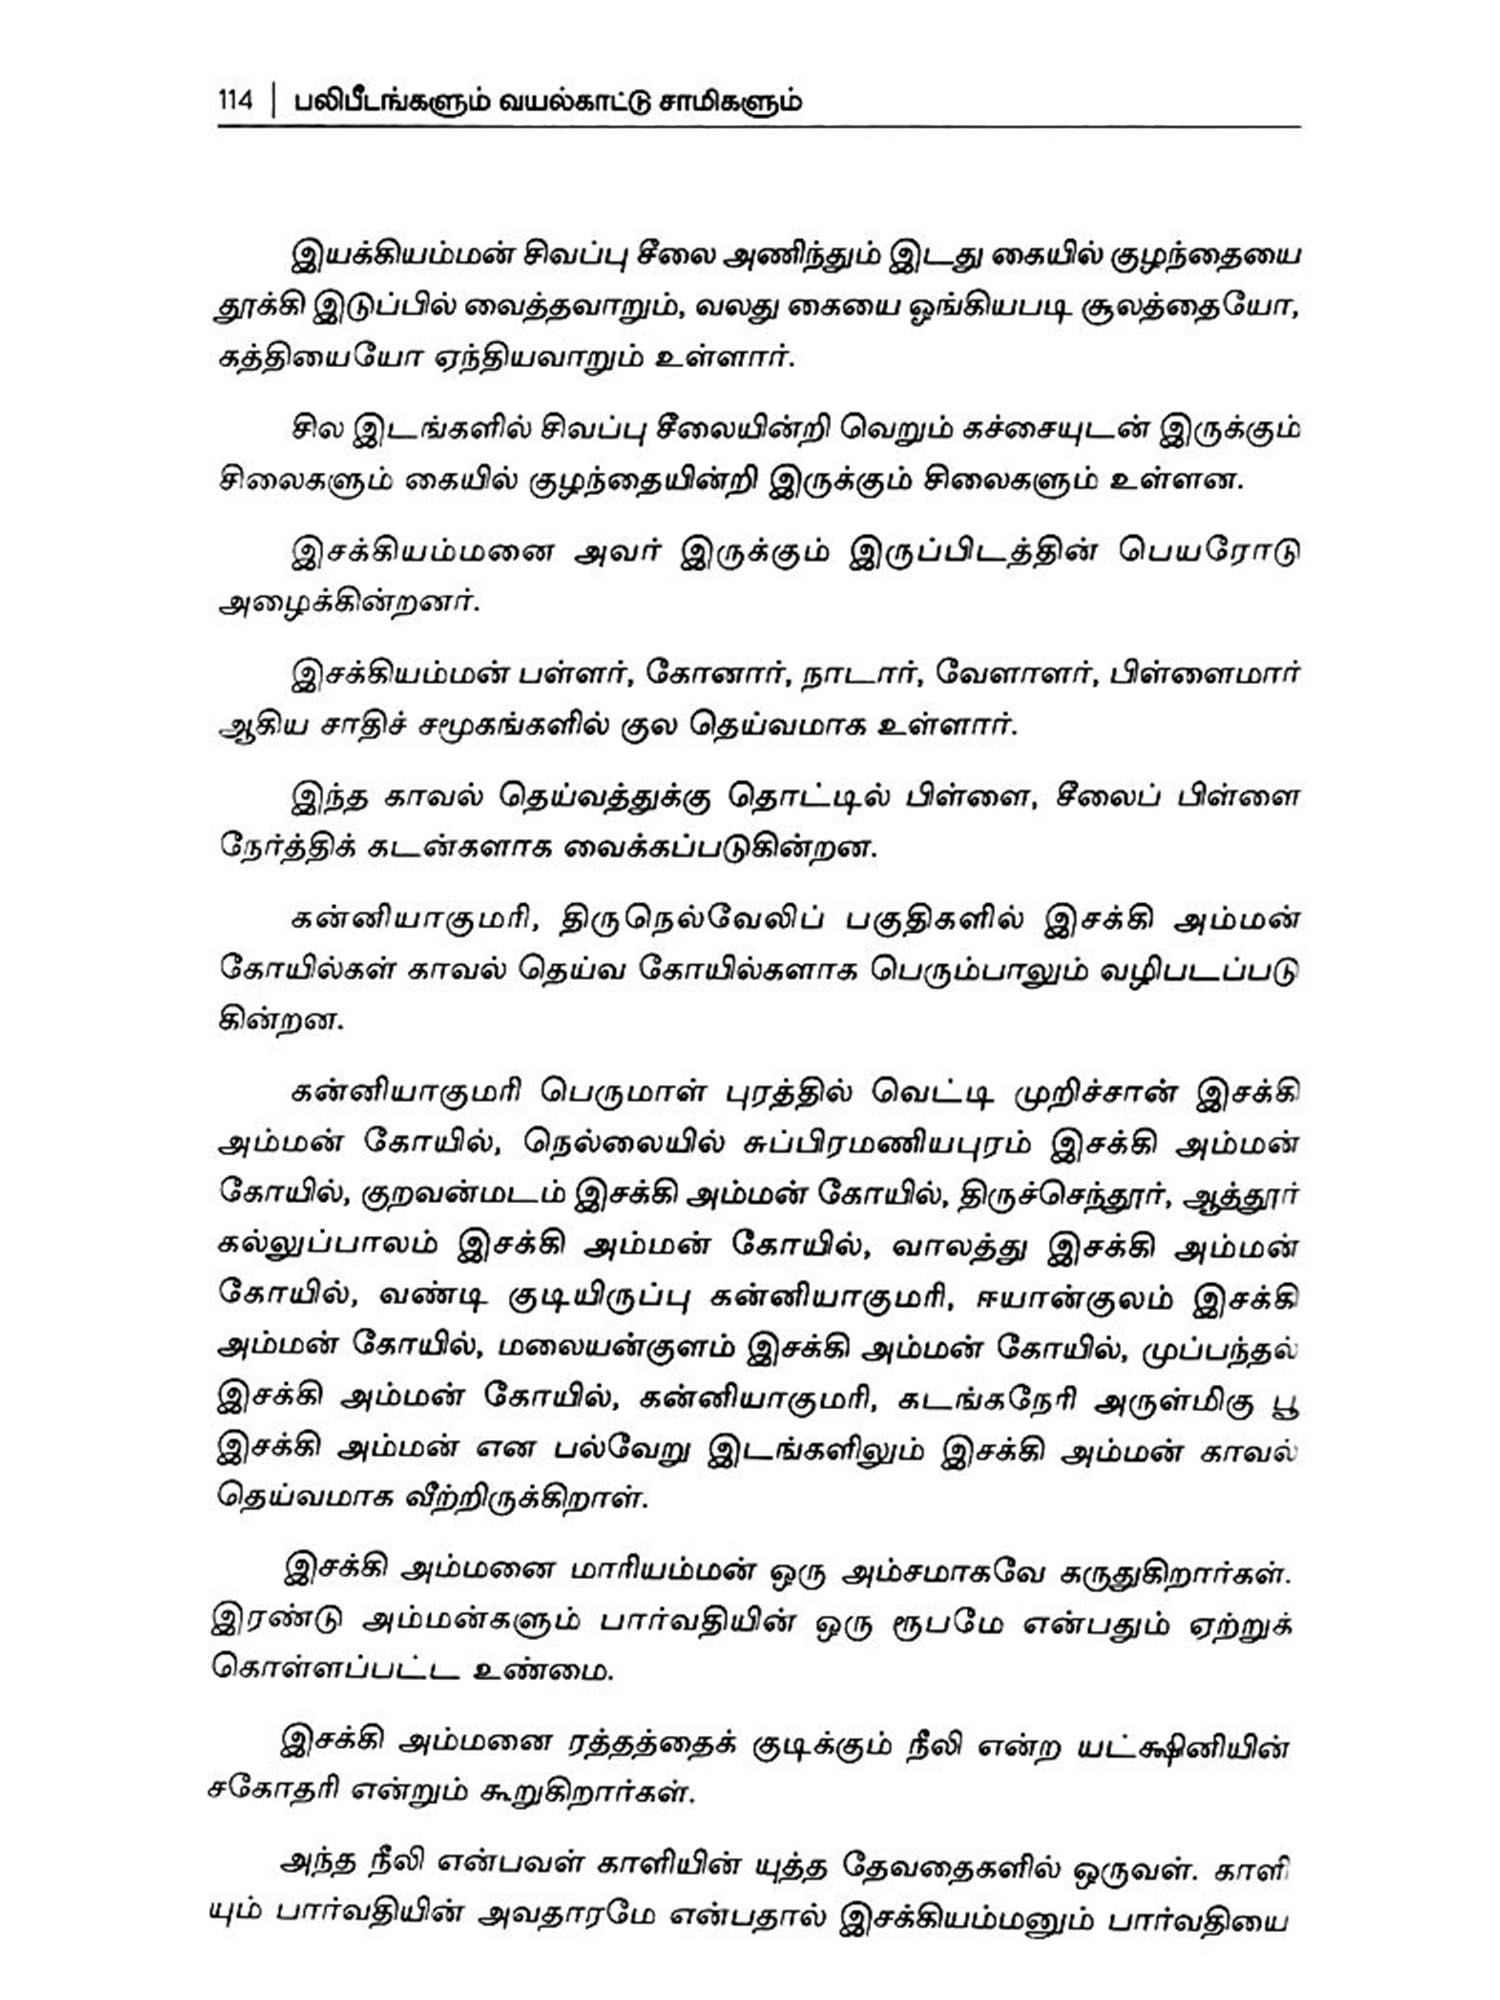 114 | பலிபீடங்களும் வயல்காட்டு சாமிகளும்
இயக்கியம்மன் சிவப்பு சீலை அணிந்தும் இடது கையில் குழந்தையை
தூக்கி இடுப்பில் வைத்தவாறும், வலது கையை ஓங்கியபடி சூலத்தையோ,
கத்தியையோ ஏந்தியவாறும் உள்ளார்.
சில இடங்களில் சிவப்பு சீலையின்றி வெறும் கச்சையுடன் இருக்கும்
சிலைகளும் கையில் குழந்தையின்றி இருக்கும் சிலைகளும் உள்ளன.
இசக்கியம்மனை அவர் இருக்கும் இருப்பிடத்தின் பெயரோடு
அழைக்கின்றனர்.
இசக்கியம்மன் பள்ளர், கோனார், நாடார், வேளாளர், பிள்ளைமார்
ஆகிய சாதிச் சமூகங்களில் குல தெய்வமாக உள்ளார்.
இந்த காவல் தெய்வத்துக்கு தொட்டில் பிள்ளை, சீலைப் பிள்ளை
நேர்த்திக் கடன்களாக வைக்கப்படுகின்றன.
கன்னியாகுமரி, திருநெல்வேலிப் பகுதிகளில் இசக்கி அம்மன்
கோயில்கள் காவல் தெய்வ கோயில்களாக பெரும்பாலும் வழிபடப்படு
கின்றன.
கன்னியாகுமரி பெருமாள் புரத்தில் வெட்டி முறிச்சான் இசக்கி
அம்மன் கோயில், நெல்லையில் சுப்பிரமணியபுரம் இசக்கி அம்மன்
கோயில், குறவன்மடம் இசக்கி அம்மன் கோயில், திருச்செந்தூர், ஆத்தூர்
கல்லுப்பாலம் இசக்கி அம்மன் கோயில், வாலத்து இசக்கி அம்மன்
கோயில், வண்டி குடியிருப்பு கன்னியாகுமரி, ஈயான்குலம் இசக்கி
அம்மன் கோயில், மலையன்குளம் இசக்கி அம்மன் கோயில், முப்பந்தல்
இசக்கி அம்மன் கோயில், கன்னியாகுமரி, கடங்கநேரி அருள்மிகு பூ
இசக்கி அம்மன் என பல்வேறு இடங்களிலும் இசக்கி அம்மன் காவல்
தெய்வமாக வீற்றிருக்கிறாள்.
இசக்கி அம்மனை மாரியம்மன் ஒரு அம்சமாகவே கருதுகிறார்கள்.
இரண்டு அம்மன்களும் பார்வதியின் ஒரு ரூபமே என்பதும் ஏற்றுக்
கொள்ளப்பட்ட உண்மை.
இசக்கி அம்மனை ரத்தத்தைக் குடிக்கும் நீலி என்ற யட்க்ஷினியின்
சகோதரி என்றும் கூறுகிறார்கள்.
அந்த நீலி என்பவள் காளியின் யுத்த தேவதைகளில் ஒருவள். காளி
யும் பார்வதியின் அவதாரமே என்பதால் இசக்கியம்மனும் பார்வதியை